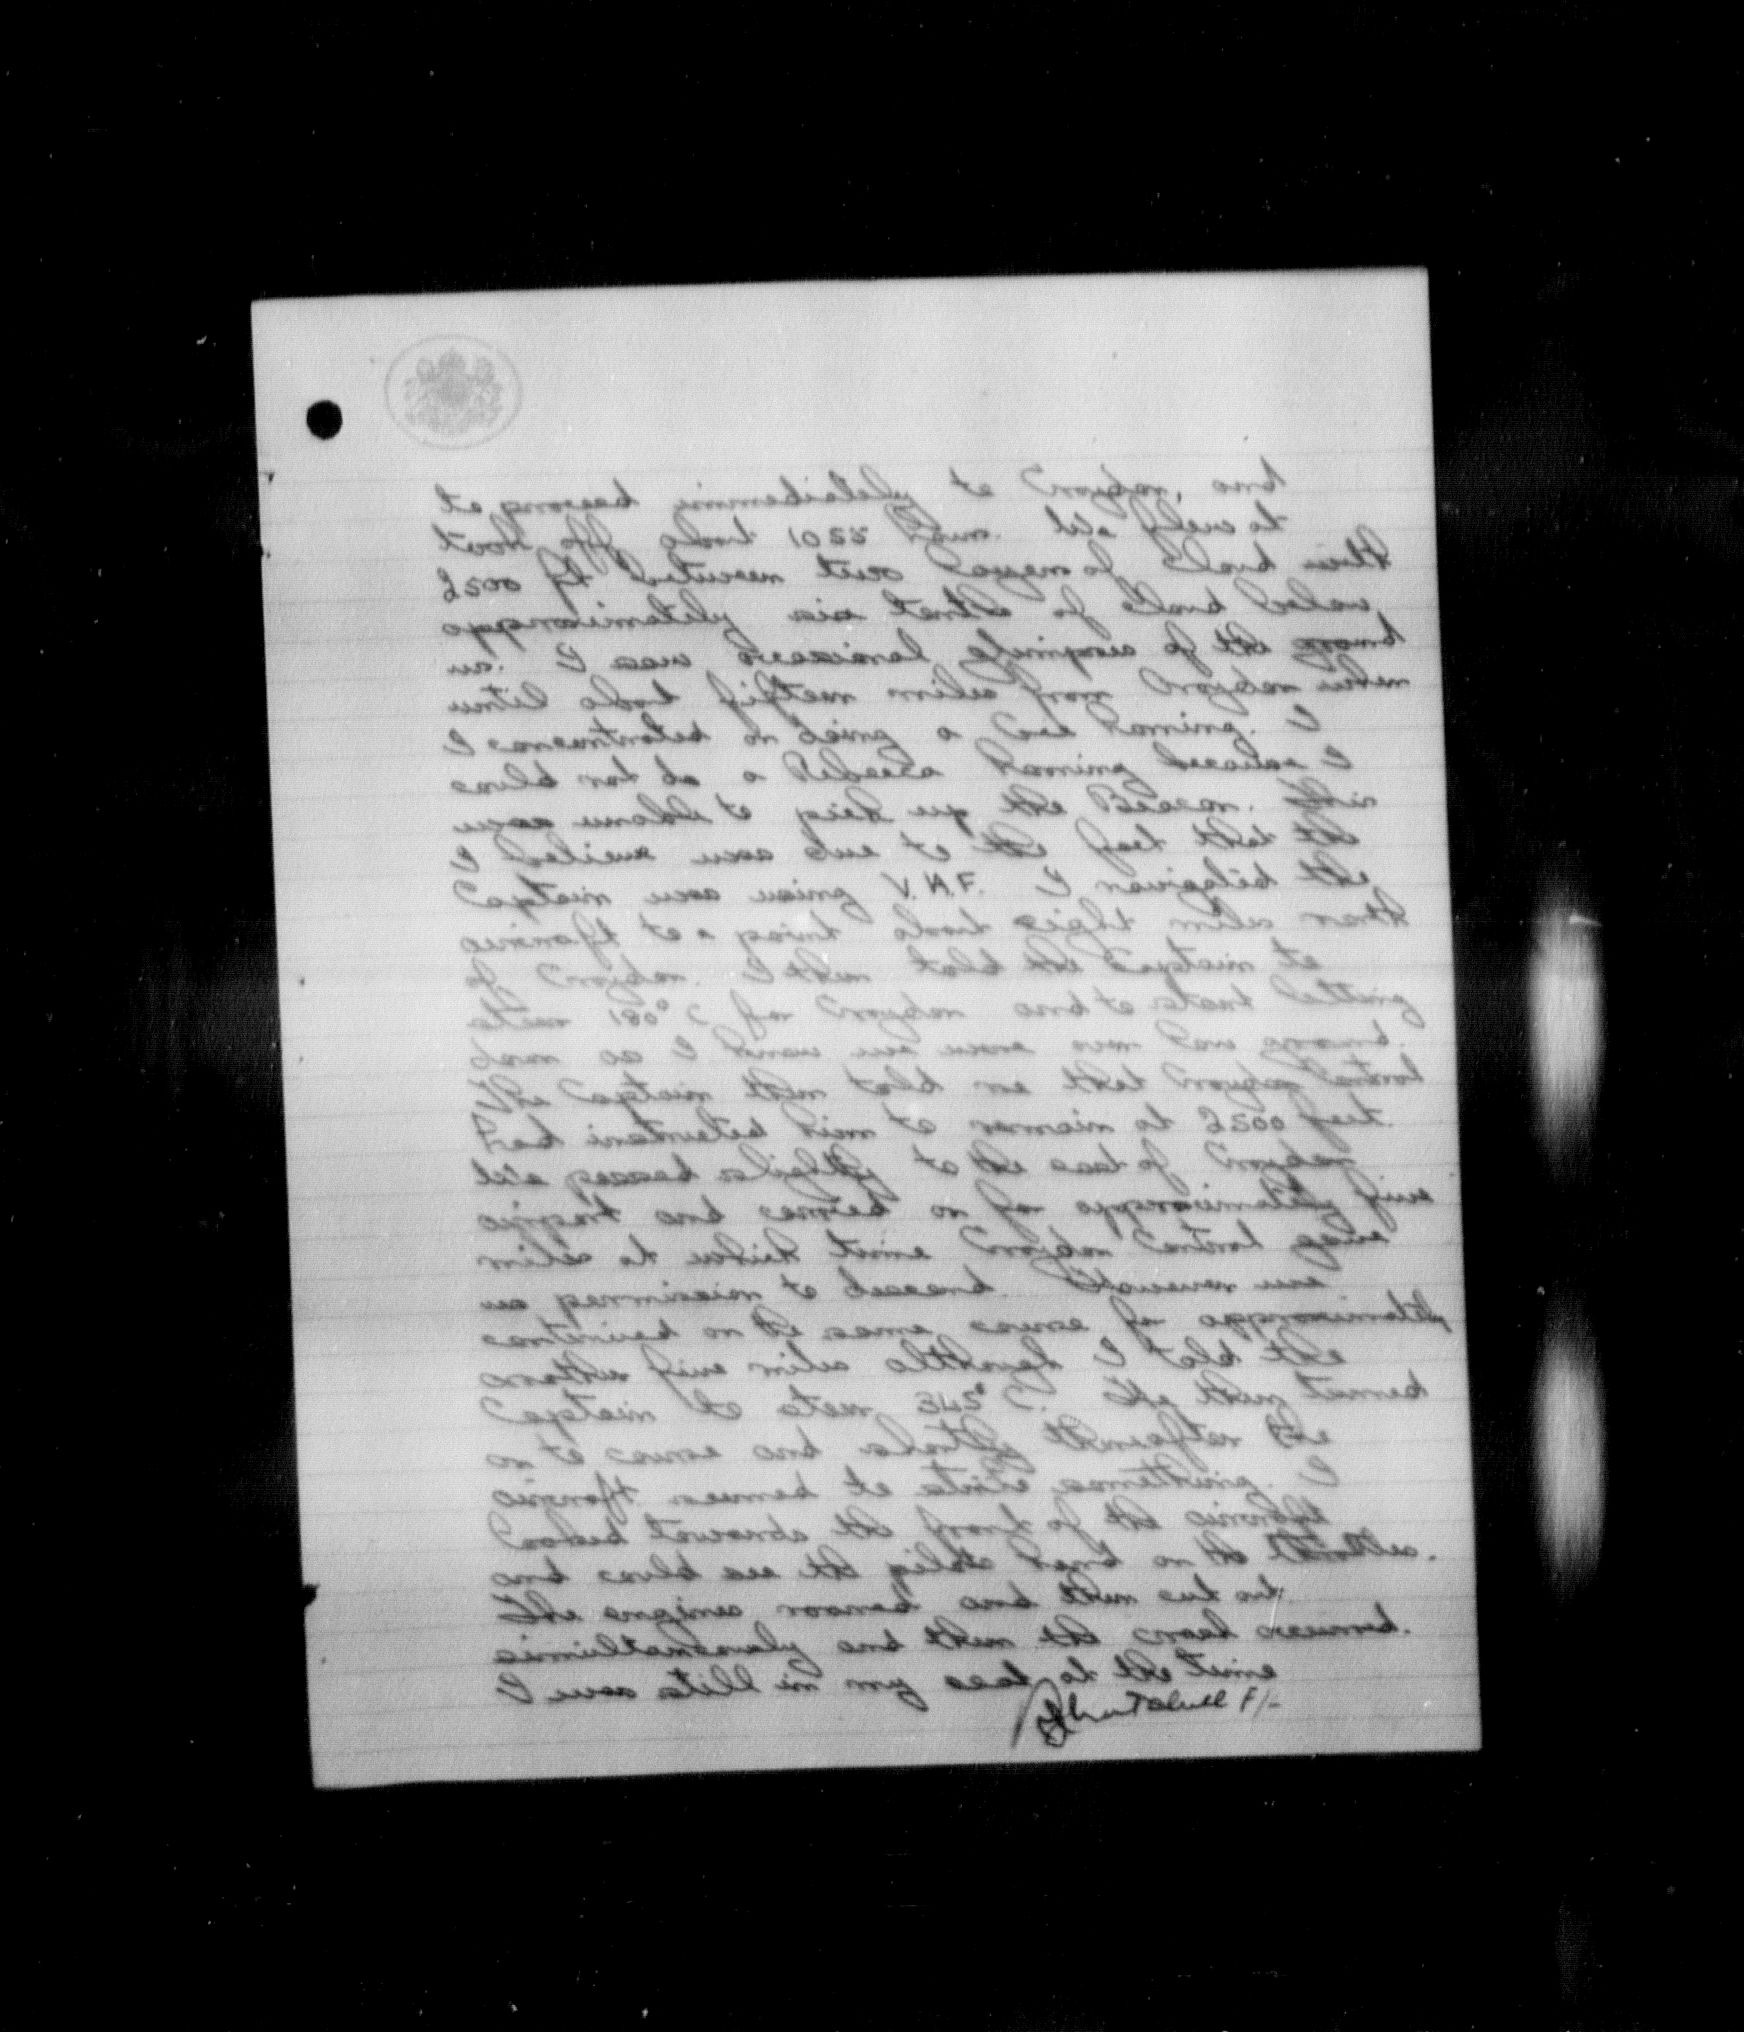 to proceed immediately to Croydon, and
took off about 1055 hrs. We flew at
3500 ft between two layers of cloud with
approximately six tenths of cloud below
us. I saw occasional glimpses of the ground
until about fifteen miles from Croydon when
I concentrated on doing a homing. I
could not do a homing because I
was unable to pick up the Beacon. This
I believe was due to the fact that the
Captain was using V.H.F. I navigated the
aircraft to a point about eight miles north
of Croydon. I then told the Captain to
steer 180° C for Croydon and to start letting
down as I knew we were over low ground.
The Captain then told me that Croydon Control
had instructed him to remain at 3500 feet.
We passed slightly to the east of Croydon
airport and carried on for approximately five
miles at which time Croydon Control gave
us permission to descend. However we
continued on the same course for approximately
another five miles altogether. I told the
Captain to steer 345° C. He then turned
on to course and shortly thereafter the
aircraft seemed to strike something. I
looked towards the front of the aircraft
and could see the pilot's hand on the throttles.
The engines roared and then cut out
simultaneously and then the crash occurred.
I was still in my seat at the time